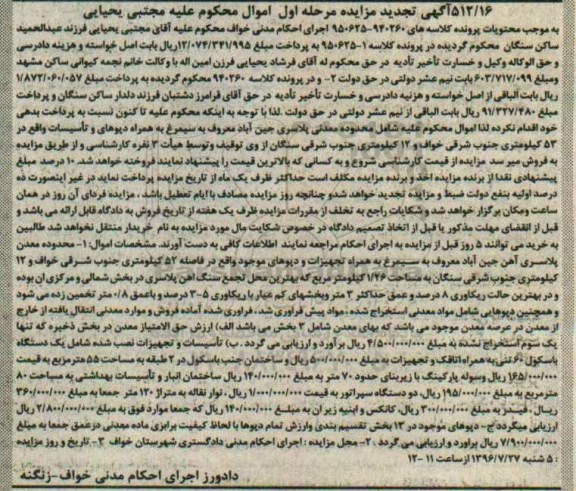 ۵۱۲/۱۶آگهی تجدید مزایده مرحله اول اموال محکوم علیه مجتبی یحیایی
به موجب محتویات پرونده کلاسه های ۹۴۰۲۶۰-۹۵۰۶۲۵ اجرای احکام مدنی خواف محکوم علیه آقای مجتبی یحیایی فرزند عبدالحمید
ساکن سنگان محکوم گردیده در پرونده کلاسه ۹۵۰۶۲۵-۱ به پرداخت مبلغ ۱۲/۰۷۴/۳۴۱/۹۹۵ریال بابت اصل خواسته و هزینه دادرسی
و حق الوکاله وکیل و خسارت تأخیر تأدیه در حق محکوم له آقای فرشاد یحیایی فرزن امین اله با وکالت خانم نجمه کیوانی ساکن مشهد
ومبلغ ۶۰۳/۷۱۷/۰۹۹ بابت نیم عشر دولتی در حق دولت ۲- و در پرونده کلاسه ۹۴۰۲۶۰ محکوم گردیده به پرداخت مبلغ ۱/۸۷۲/۰۶۰/۰۵۷
ریال بابت الباقی از اصل خواسته و هزینه دادرسی و خسارت تأخیر تأدیه در حق آقای فرامرز دشتبان فرزند دلدار ساکن سنگان و پرداخت
مبلغ ۹۱/۳۲۷/۴۸۰ ریال بابت الباقی از نیم عشر دولتی در حق دولت .لذا با توجه به اینکه محکوم علیه تا کنون نسبت به پرداخت بدهی
خود اقدام نکرده لذا اموال محکوم علیه شامل محدوده معدنی پلاسری جین آباد معروف به سیمرغ به همراه دپوهای و تأسیسات واقع در
۵۳ کیلومتری جنوب شرقی خواف و ۱۲ کیلومتری جنوب شرقی سنگان از وی توقیف و توسط هیأت ۳ نفره کارشناسی و از طریق مزایده
به فروش میر سد مزایده از قیمت کارشناسی شروع و به کسانی که بالاترین قیمت را پیشنهاد نمایند فروخته خواهد شد. ۱۰ درصد مبلغ
پیشنهادی نقدا از برنده مزایده اخذ و برنده مزایده مکلف است حداکثر ظرف یک ماه از تاریخ مزایده پرداخت نماید در غیر اینصورت ده
درصد اولیه بنفع دولت ضبط و مزایده تجدید خواهد شدو چنانچه روز مزایده مصادف با ایام تعطیل باشد ، مزایده فردای آن روز در همان
ساعت ومکان برگزار خواهد شد و شکایات راجع به تخلف از مقررات مزایده ظرف یک هفته از تاریخ فروش به دادگاه قابل ارائه می باشد و
قبل از انقضای مهلت مذکور یا قبل از اتخاذ تصمیم دادگاه در خصوص شکایت مال مورد مزایده به نام خریدار منتقل نخواهد شد طالبین
به خرید می توانند ۵ روز قبل از مزایده به اجرای احکام مراجعه نمایند اطلاعات کافی به دست آورند. مشخصات اموال: ۱- محدوده معدن
پلاسری آهن جین آباد معروف به سیمرغ به همراه تجهیزات و دپوهای موجود واقع در فاصله ۵۲ کیلومتری جنوب شرقی خواف و ۱۲
کیلومتری جنوب شرقی سنگان به مساحت ۱/۲۶ کیلومتر مربع که بهترین محل تجمع سنگ آهن پلاسری در بخش شمالی و مرکزی ان بوده
و در بهترین حالت ریکاوری ۸ درصد و عمق حداکثر ۳ متر وبخشهای کم عیار با ریکاوری ۵-۳ درصد و باعمق ۰/۸ متر تخمین زده می شود
و همچنین دپوهایی شامل مواد معدنی استخراج شده، مواد پیش فرآوری شد، فرآوری شده آماده فروش و موارد معدنی انتقال یافته از خارج
از معدن در عرصه معدن موجود می باشد که بهای معدن شامل ۳ بخش می باشد الف) ارزش حق الامتیاز معدن در بخش ذخیره که تنها
یک سوم استخراج نشده به مبلغ ۴/۵۰۰/۰۰۰/۰۰۰ ریال برآورد و ارزیابی می گردد .ب) تأسیسات و تجهیزات نصب شده شامل یک دستگاه
باسکول ۶۰ تنی به همراه اتاقک و تجهیزات به مبلغ ۵۰۰/۰۰۰/۰۰۰ ریال و ساختمان جنب باسکول در ۲ طبقه به مساحت ۵۵ مترمربع به قیمت
۱۶۵/۰۰۰/۰۰۰ ریال وسوله پارکینگ با زیربنای حدود ۷۰ متر به مبلغ ۱۴۰/۰۰۰/۰۰۰ ریال ساختمان انبار و تأسیسات بهداشتی به مساحت ۸۰
مترمربع به مبلغ ۱۹۵/۰۰۰/۰۰۰ ریال، دو دستگاه سپراتور به قیمت ۱/۰۰۰/۰۰۰/۰۰۰ ریال، نوار نقاله به متراژ ۱۲۰ متر جمعا به مبلغ ۳۶۰/۰۰۰/۰۰۰
ریـال ، فیـدر به مبلغ ۳۰۰/۰۰۰/۰۰۰ ریال، کانکس و ابنیه زیر ان به مبلـغ ۱۴۰/۰۰۰/۰۰۰ ریال که جمعا موارد فوق به مبلغ ۲/۸۰۰/۰۰۰/۰۰۰ ریال
ارزیابی میگردد ج- دپوهای موجود در ۱۳ بخش تقسیم بندی وارزش تمام دپوها با لحاظ کیفیت برابزی ماده معدنی درعمق جمعا به مبلغ
۷/۹۰۰/۰۰۰/۰۰۰ ریال براورد وارزیابی می گردد ۲- محل مزایده : اجرای احکام مدنی دادگستری شهرستان خواف ۳- تاریخ و روز مزایده
: ۵ شنبه ۱۳۹۶/۷/۲۷ ازساعت ۱۱-۱۲
دادورز اجرای احکام مدنی خواف-زنگنه